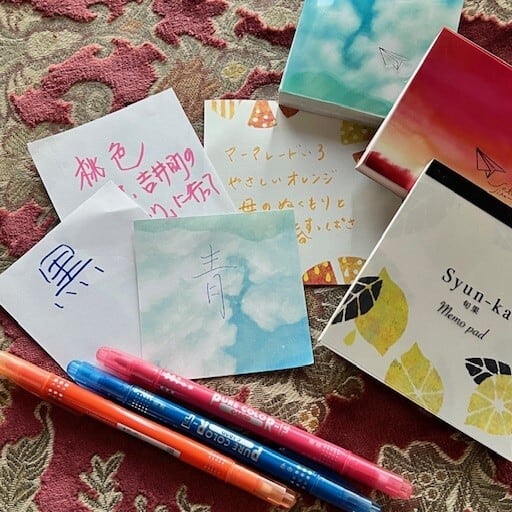 桃色
吉井町の
に寄って
マーマレードいろ
やさしいオレンジ
母のぬくもりと
黒
青
Syun-ka
旬菓
Memo pad
PURE COLOR
PURE COLOR